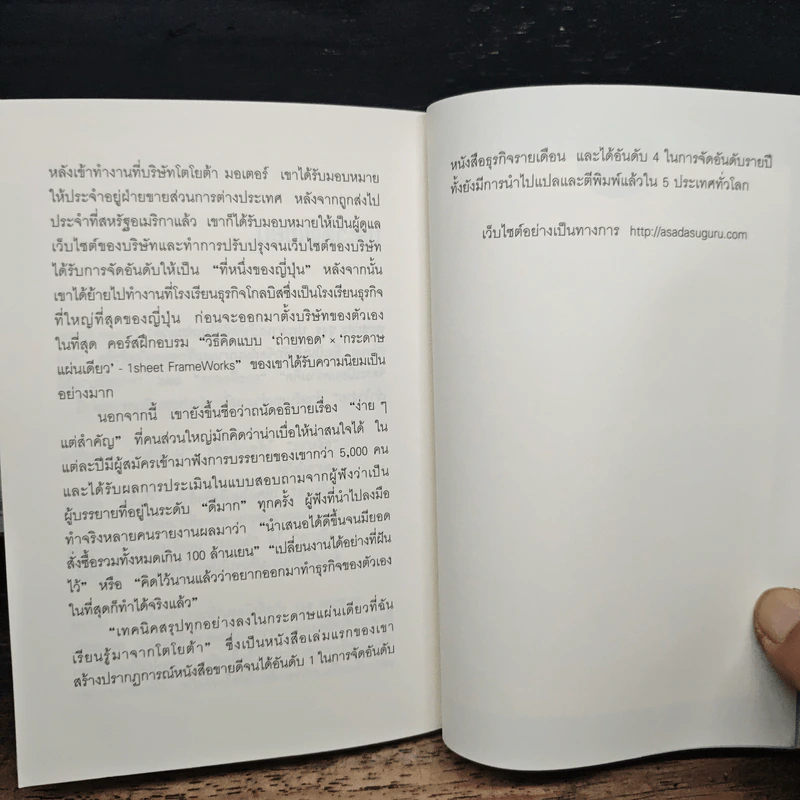 หลังเข้าทำงานที่บริษัทโตโยต้า มอเตอร์ เขาได้รับมอบหมาย
ให้ประจำอยู่ฝ่ายขายส่วนการต่างประเทศ หลังจากถูกส่งไป
ประจำที่สหรัฐอเมริกาแล้ว เขาก็ได้รับมอบหมายให้เป็นผู้ดูแล
เว็บไซต์ของบริษัทและทำการปรับปรุงจนเว็บไซต์ของบริษัท
ได้รับการจัดอันดับให้เป็น “ที่หนึ่งของญี่ปุ่น” หลังจากนั้น
เขาได้ย้ายไปทำงานที่โรงเรียนธุรกิจโกลบิสซึ่งเป็นโรงเรียนธุรกิจ
ที่ใหญ่ที่สุดของญี่ปุ่น ก่อนจะออกมาตั้งบริษัทของตัวเอง
ในที่สุด คอร์สฝึกอบรม “วิธีคิดแบบ ‘ถ่ายทอด’ × ‘กระดาษ
แผ่นเดียว’ - 1sheet FrameWorks” ของเขาได้รับความนิยมเป็น
อย่างมาก
นอกจากนี้ เขายังขึ้นชื่อว่าถนัดอธิบายเรื่อง “ง่าย ๆ
แต่สำคัญ” ที่คนส่วนใหญ่มักคิดว่าน่าเบื่อให้น่าสนใจได้ ใน
แต่ละปีมีผู้สมัครเข้ามาฟังการบรรยายของเขากว่า 5,000 คน
และได้รับผลการประเมินในแบบสอบถามจากผู้ฟังว่าเป็น
ผู้บรรยายที่อยู่ในระดับ “ดีมาก” ทุกครั้ง ผู้ฟังที่นำไปลงมือ
ทำจริงหลายคนรายงานผลมาว่า “นำเสนอได้ดีขึ้นจนมียอด
สั่งซื้อรวมทั้งหมดเกิน 100 ล้านเยน” “เปลี่ยนงานได้อย่างที่ฝัน
ไว้” หรือ “คิดไว้นานแล้วว่าอยากออกมาทำธุรกิจของตัวเอง
ในที่สุดก็ทำได้จริงแล้ว”
“เทคนิคสรุปทุกอย่างลงในกระดาษแผ่นเดียวที่ฉัน
เรียนรู้มาจากโตโยต้า” ซึ่งเป็นหนังสือเล่มแรกของเขา
สร้างปรากฏการณ์หนังสือขายดีจนได้อันดับ 1 ในการจัดอันดับ
หนังสือธุรกิจรายเดือน และได้อันดับ 4 ในการจัดอันดับรายปี
ทั้งยังมีการนำไปแปลและตีพิมพ์แล้วใน 5 ประเทศทั่วโลก
เว็บไซต์อย่างเป็นทางการ http://asadasuguru.com